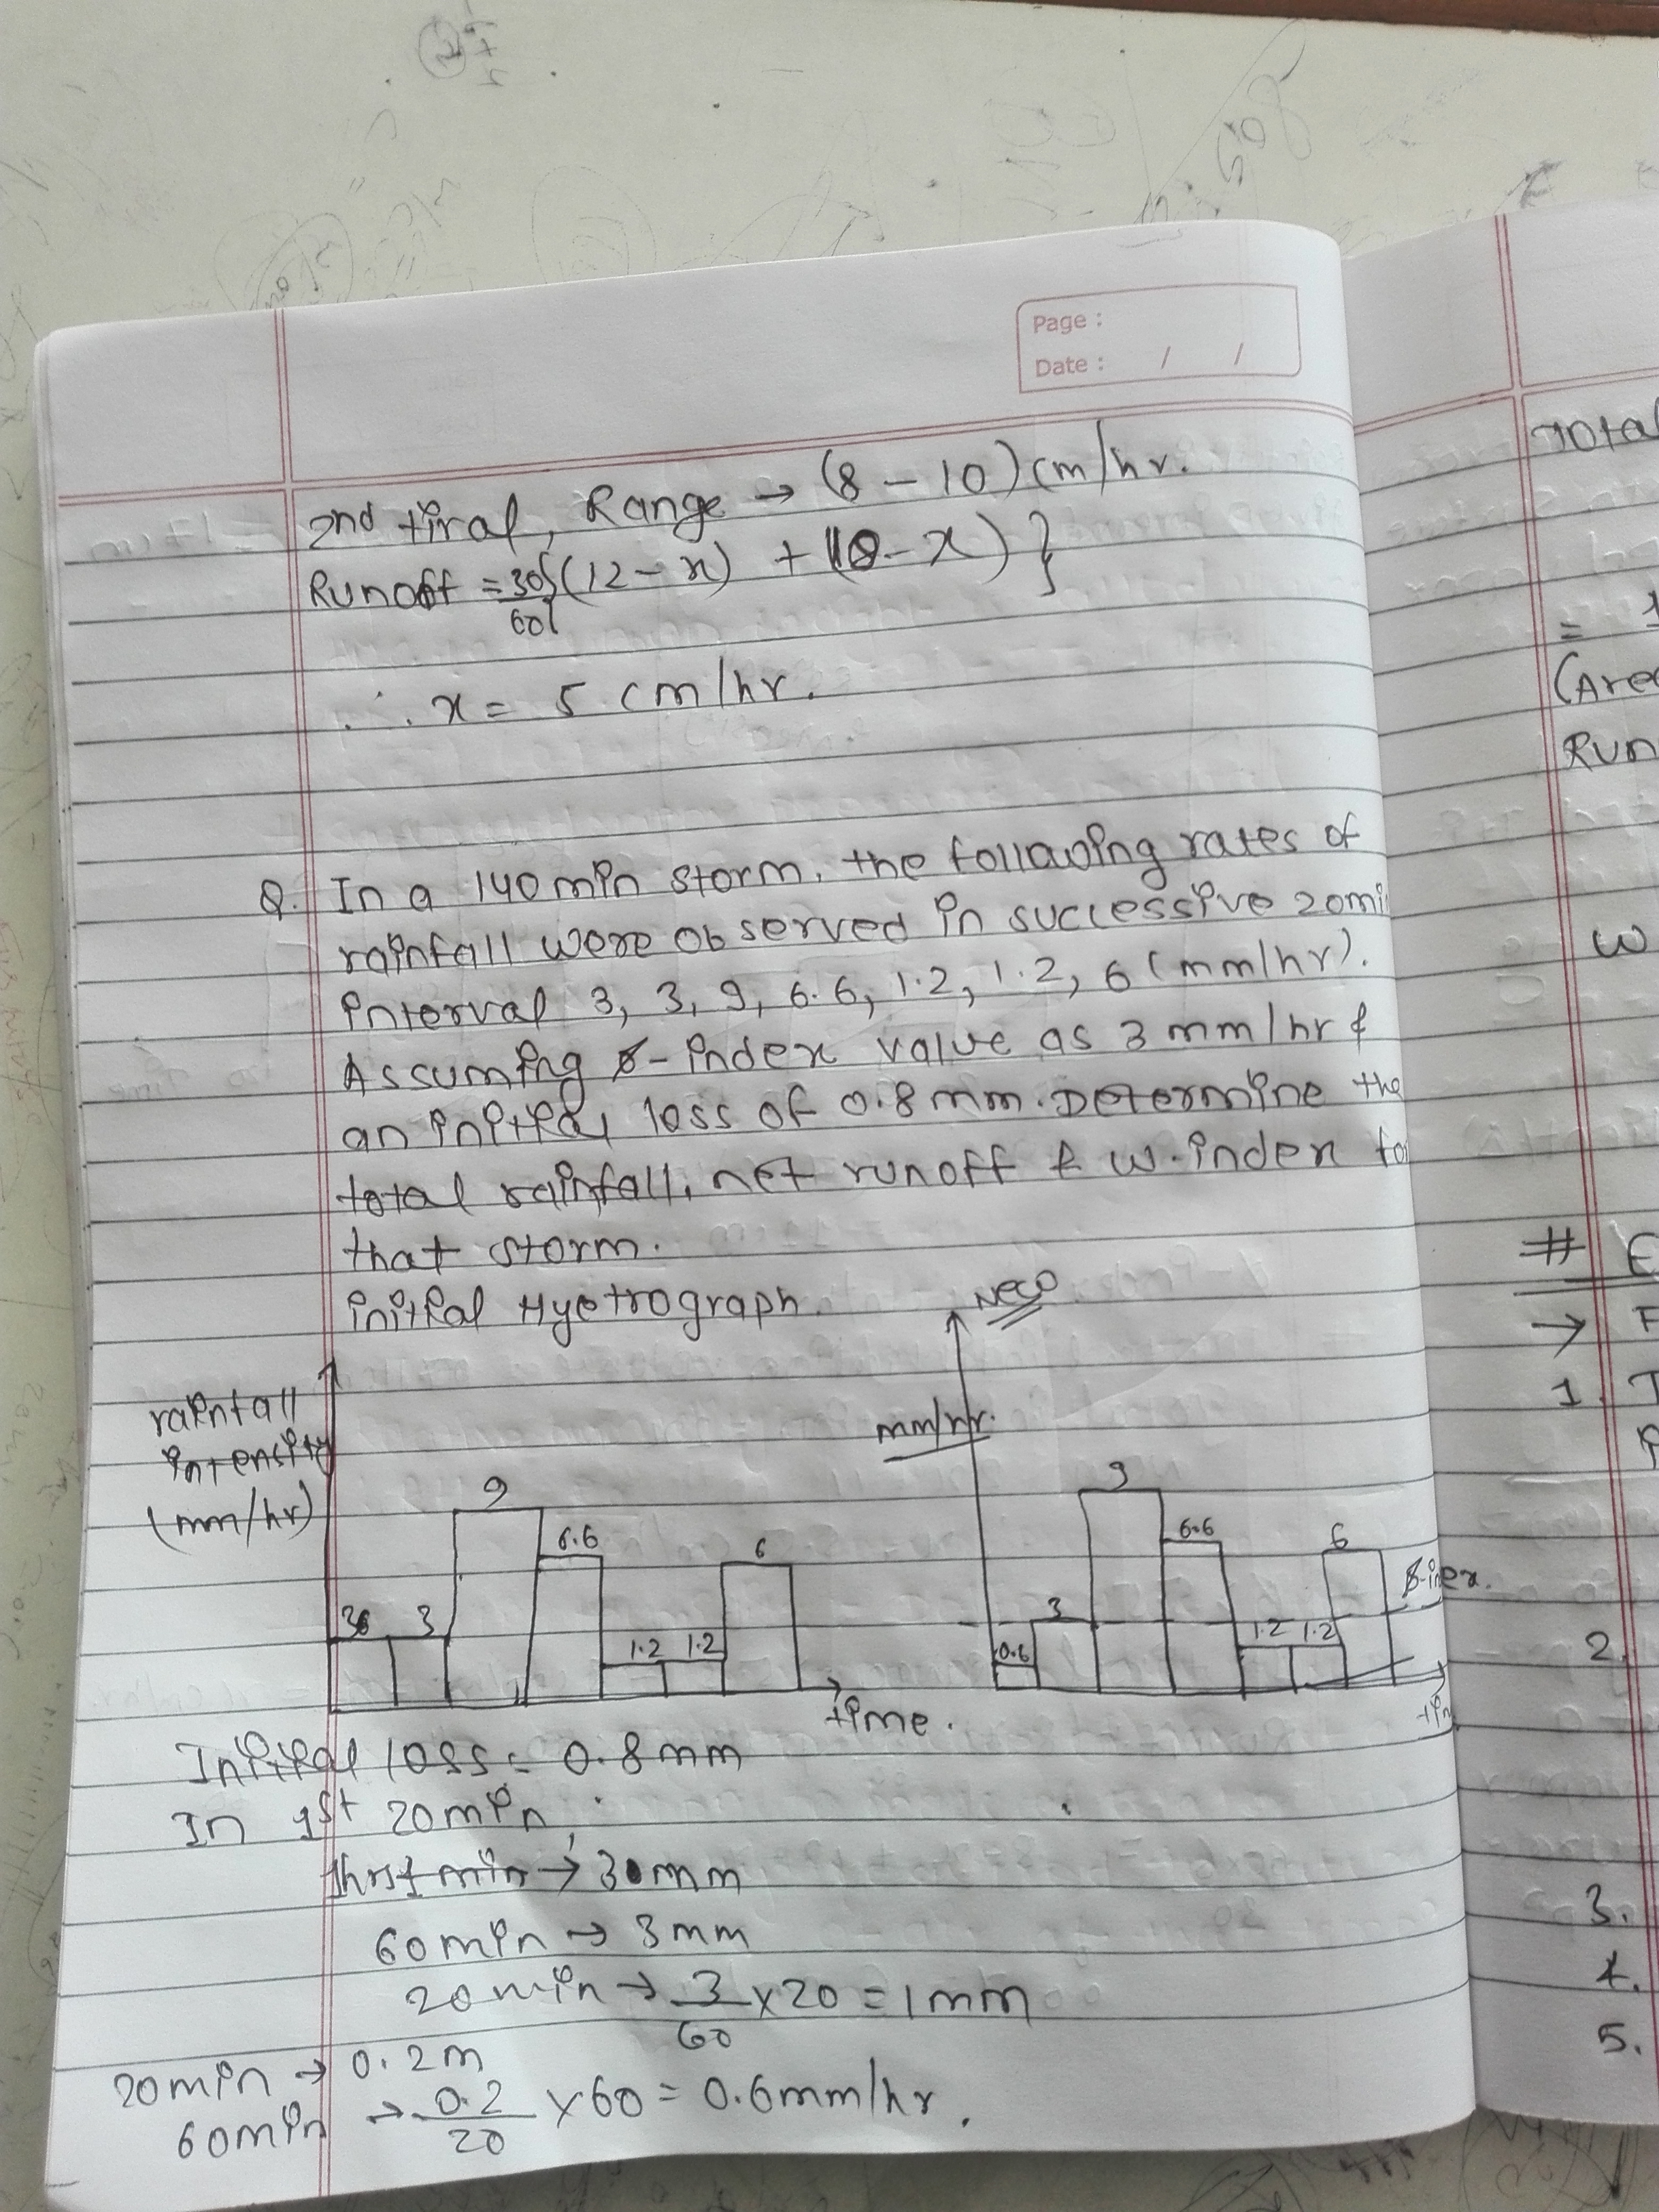 Page :
Date : / /
2nd tiral, Range → (8 – 10) cm/hr.
Runoff = 30/60 {(12 – x) + (10 – x)}
∴ x = 5 cm/hr.
Q. In a 140 min storm, the following rates of
rainfall were observed in successive 20mi
interval 3, 3, 9, 6.6, 1.2, 1.2, 6 (mm/hr).
Assuming ϕ-index value as 3 mm/hr &
an initial loss of 0.8 mm. Determine the
total rainfall, net runoff & W-index fo
that storm.
initial Hyetrograph.
New
rainfall
intensity
(mm/hr)
mm/hr.
3 3 9 6.6 1.2 1.2 6
time.
0.6 3 9 6.6 1.2 1.2 6
ϕ-inex.
tim
Initial loss = 0.8 mm
In 1st 20 min,
60 min → 3 mm
20 min → 3/60 × 20 = 1 mm
20 min → 0.2 m
60 min → 0.2/20 × 60 = 0.6 mm/hr.
Total
=
(Are
Run
W
#
→
1.
2.
3.
4.
5.